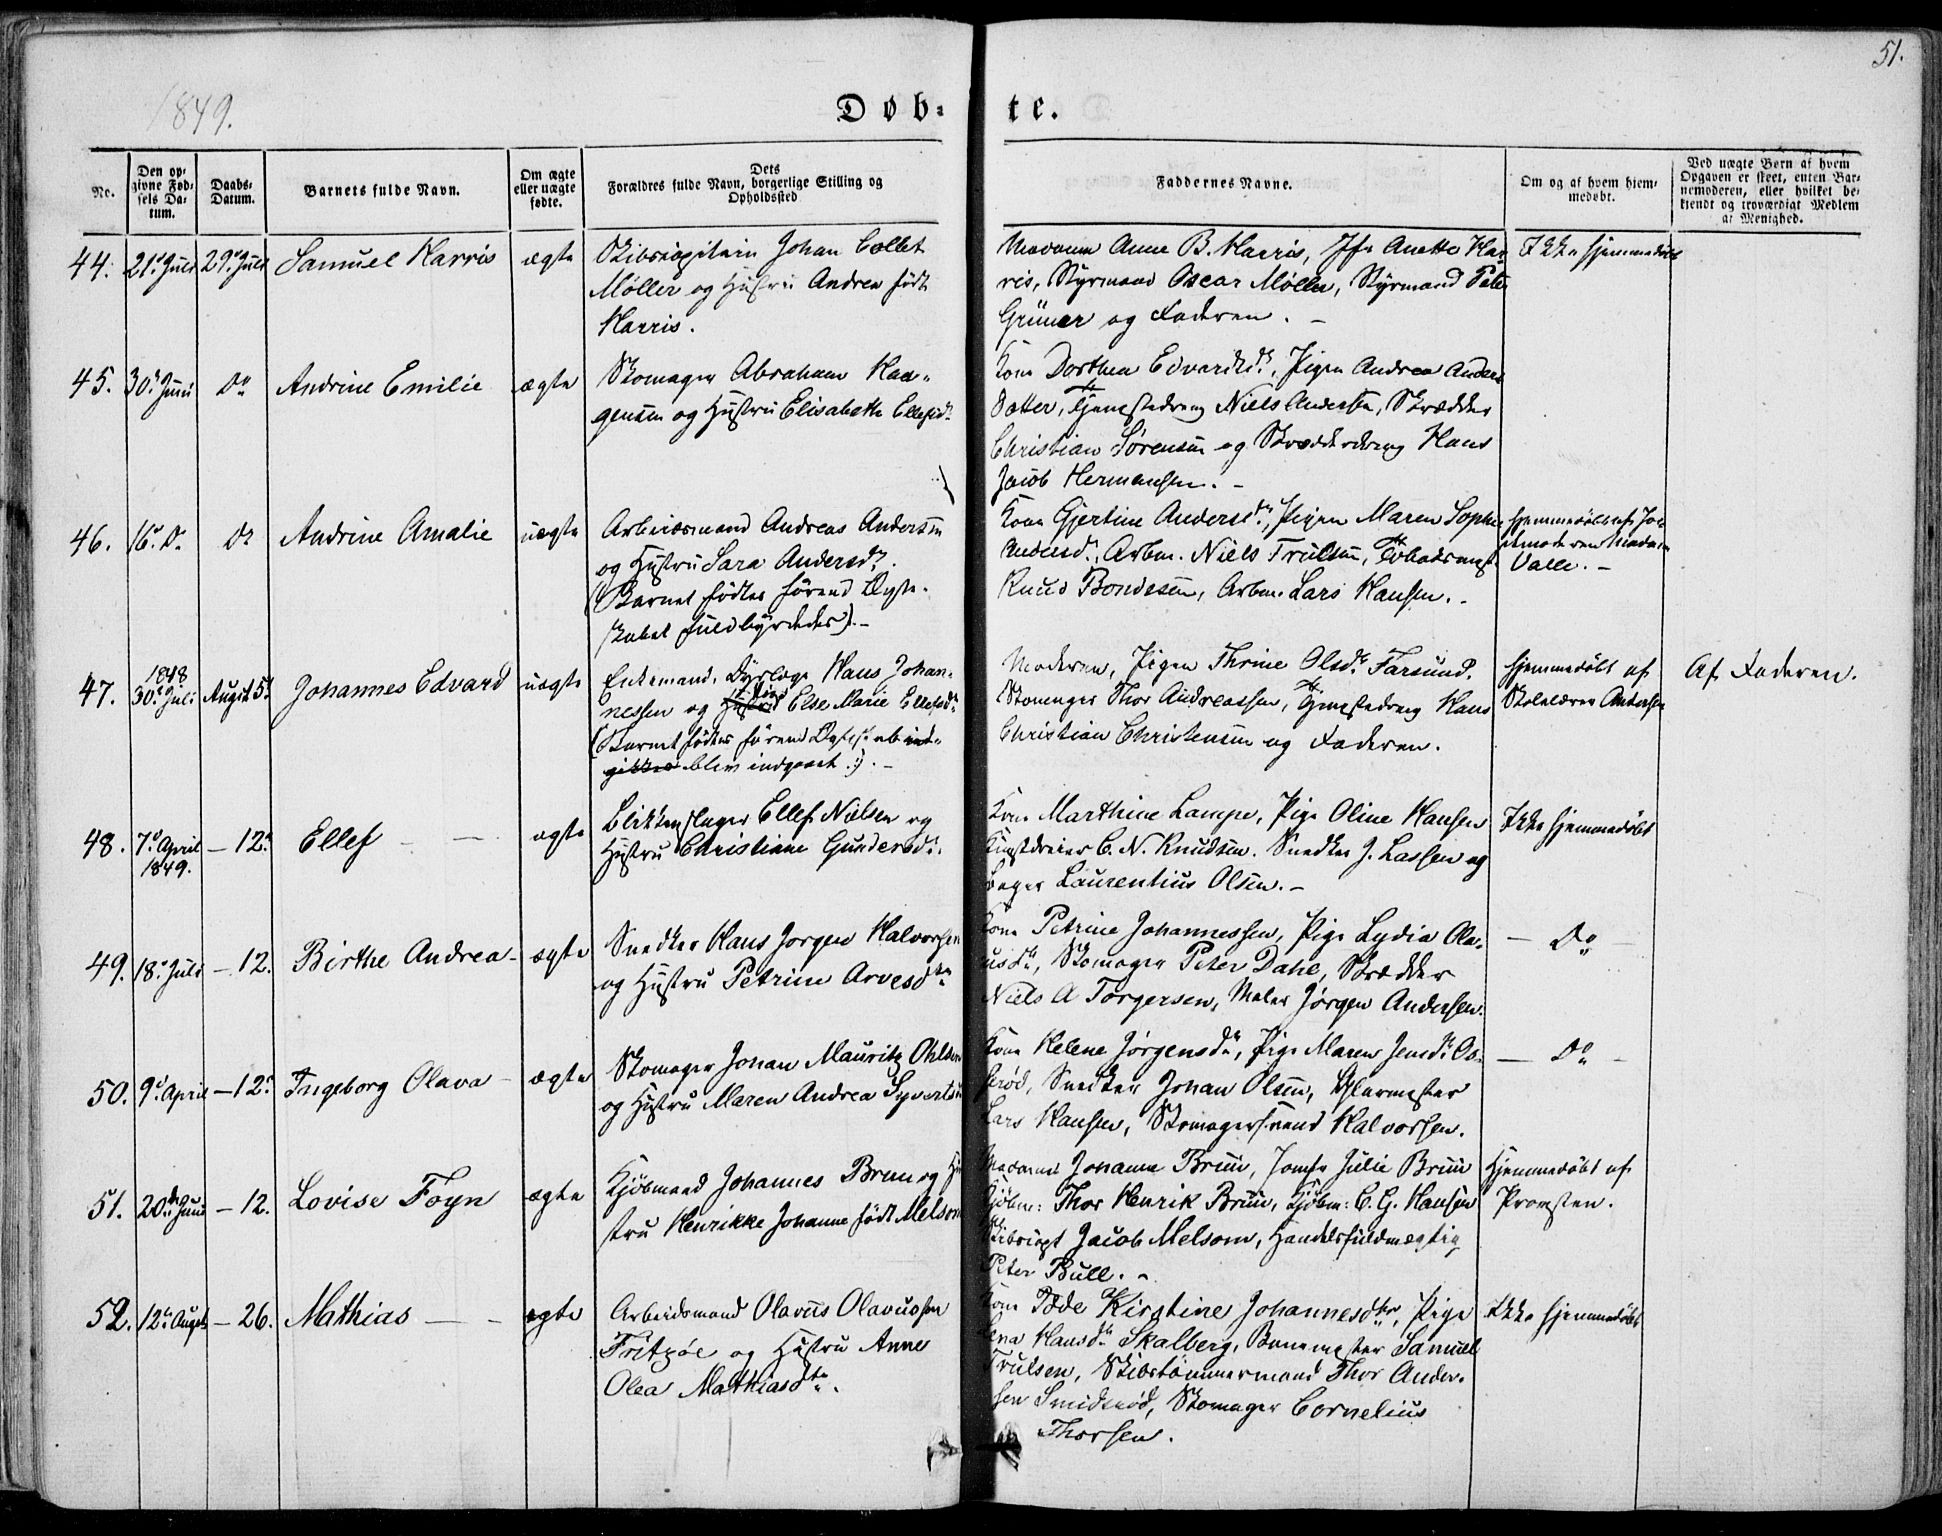 51.
1849.
Døb-te.
No.
Den opgivne Fødsels Datum.
Daabs-Datum.
Barnets fulde Navn.
Om ægte eller uægte fødte.
Dets Forældres fulde Navn, borgerlige Stilling og Opholdssted
Faddernes Navne.
Om og af hvem hjemmedøbt.
Ved uægte Børn af hvem Opgaven er skeet, enten Barnemoderen, eller hvilket bekjendt og troværdigt Medlem af Menighed.
44. 21de Juli 29de Juli Samuel Harris ægte
Skibscapitain Johan Collet
Møller og Hustru Andrea født
Harris.
Madame Anne B. Harris, Jfr Anette Har-
ris, Styrmand Oscar Møller, Styrmand Peter
Grüner og Faderen. –
Ikke hjemmedøbt
45. 30de Juni Do Andrine Emilie ægte
Skomager Abraham Haa-
gensen og Hustru Elisabeth Ellefsdr
Kone Dorthea Edvardsdr, Pigen Andrea Anders
Datter, Tjenestedreng Niels Andersen, Skrædder
Christian Sørensen og Skrædderdreng Hans
Jacob Hermansen. –
46. 16de Do Do Andrine Amalie uægte
Arbeidsmand Andreas Andersen
og Hustru Sara Andersdr.
(Barnet födtes förend Ægte-
skabet fuldbyrdedes). –
Kone Gjertine Andersdtr, Pigen Maren Sophie
Andersdr, Arbm. Niels Trulsen,
Knud Bondesen, Arbm. Lars Hansen. –
hjemmedøbt af Jor-
demoderen Madam
Valle. –
47. 1848 30de Juli August 5te Johannes Edvard uægte
Enkemand, Dyrlæge Hans Johan-
nessen og Hustru Pige Else Marie Ellefsdr
(Barnet födtes förend Ægtesk ab ind-
gikkes blev indgaaet :). –
Moderen, Pigen Thrine Olsdr Farsund.
Skomager Thor Andreassen, Tjenestedreng Hans
Christian Christensen og Faderen.
hjemmedøbt af
Skolelærer Andersen
Af Faderen.
48. 7de April 1849. – 12te Ellef – – ægte
Blikkenslager Ellef Nielsen og
Hustru Christiane Gundersdr.
Kone Marthine Lampe, Pige Oline Hansen
Kunstdreier C. N. Knudsen. Snedker J. Lassen og
Bager Laurentius Olsen. –
Ikke hjemmedøbt
49. 18de Juli – 12. Birthe Andrea – ægte
Snedker Hans Jørgen Halvorsen
og Hustru Petrine Arvesdtr
Kone Petrine Johannessen, Pige Lydia Ola-
usdtr, Skomager Peter Dahl, Skrædder
Niels A Torgersen, Maler Jörgen Andersen.
– Do –
50. 9de April – 12te Ingeborg Olava – ægte
Skomager Johan Mauritz Ohlsen
og Hustru Maren Andrea Syvertsen
Kone Helene Jörgensdr, Pige Maren Jensdr Oo-
seröd, Snedker Johan Olsen, Glarmester
Lars Hansen, Skomagersvend Halvorsen.
– Do –
51. 20de Juni – 12. Lovise Foyn ægte
Kjöbmand Johannes Bruun og Hu-
stru Henrikke Johanne født Melsom
Madame Johanne Bruun, Jomfr Julie Bruun
Kjöbm: Thor Henrik Bruun, Kjöbm: C. G. Hansen
Skibscapt Jacob Melsom, Handelsfuldmægtig
Peter Bull. –
Hjemmedøbt af
Provsten.
52. 12te August – 26. Mathias – – ægte
Arbeidsmand Olavus Olavussen
Fritzöe og Hustru Anne
Olea Mathiasdtr.
Kone Kirstine Johannesdtr, Pige
Lena Hansdr Skalberg, Samuel
Trulsen, Skibstömmermand Thor Ander-
sen Smidsröd, Skomager Cornelius
Thorsen.
Ikke hjemmedøbt